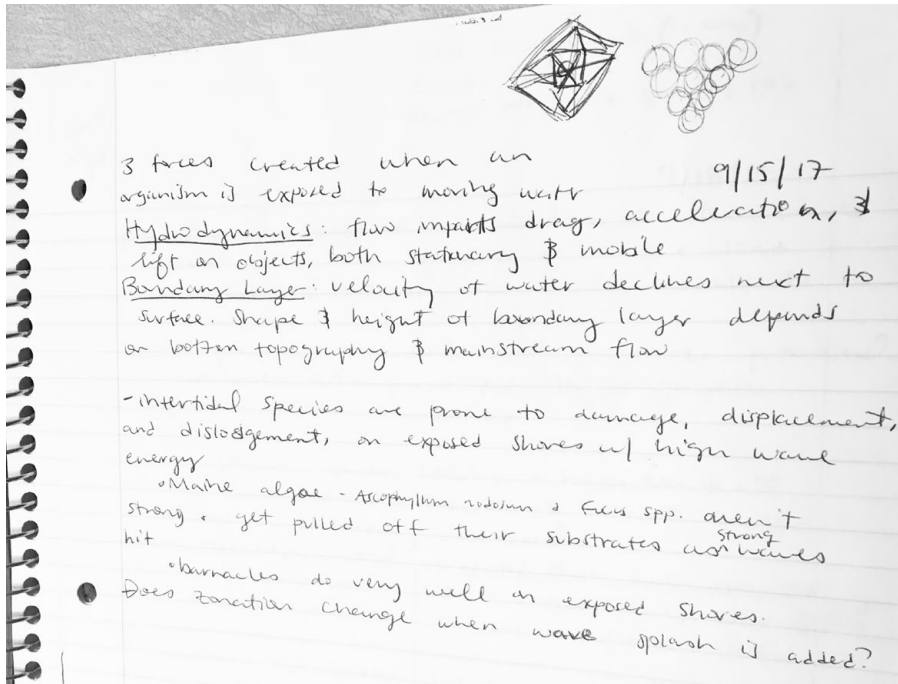 3 forces created when an
9/15/17
organism is exposed to moving water
Hydrodynamics: flow imparts drag, acceleration, &
lift on objects, both stationary & mobile
Boundary Layer: velocity of water declines next to
surface. Shape & height of boundary layer depends
on bottom topography & mainstream flow
-intertidal species are prone to damage, displacement,
and dislodgement, on exposed shores w/ high wave
energy
•Maine algae - Ascophyllum nodosum & Fucus spp. aren't
strong. get pulled off their substrates as strong waves
hit
•barnacles do very well on exposed shores.
Does zonation change when wave splash is added?